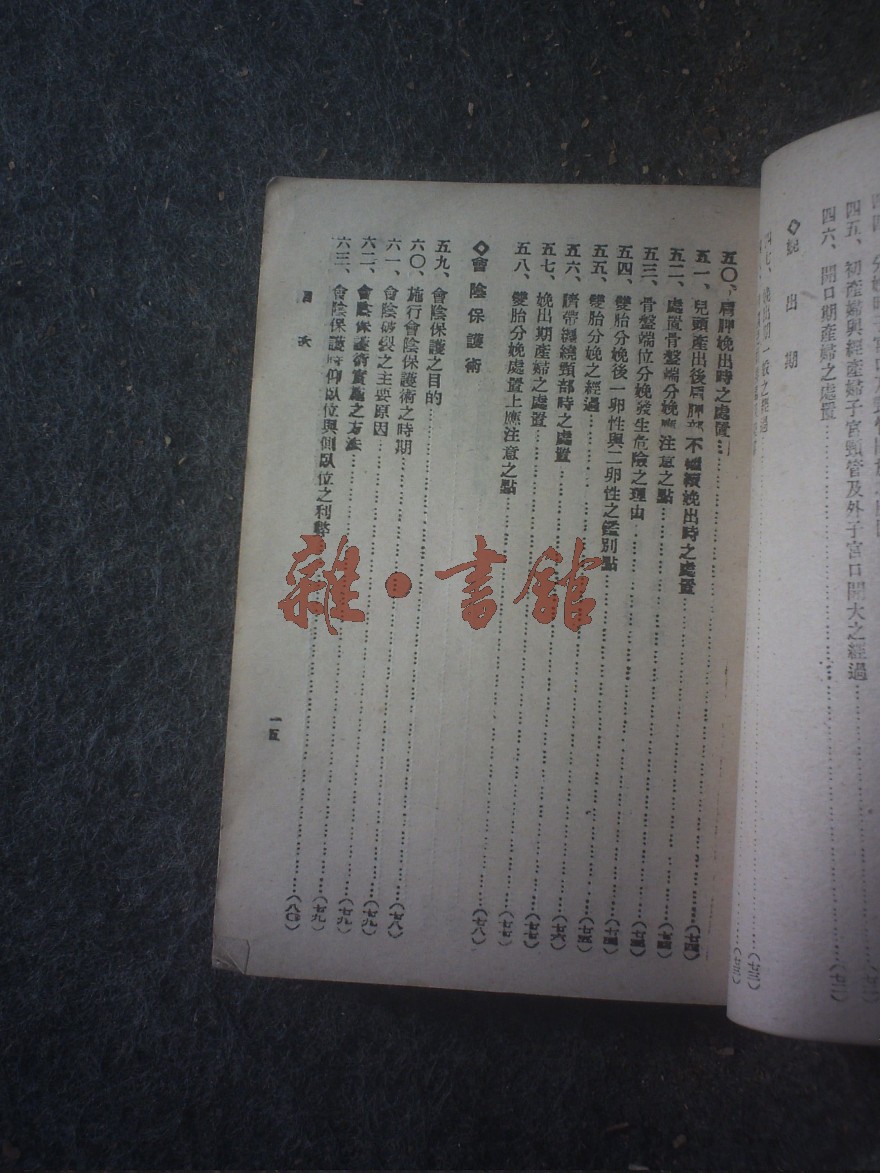 四五、初產婦與經產婦子宮頸管及外子宮口開大之經過
四六、開口期產婦之處置……(七二)
◇娩出期
四七、娩出期一般之經過……(七三)
五〇、肩胛娩出時之處置
五一、兒頭產出後肩胛部不繼續娩出時之處置……(七四)
五二、處置骨盤端分娩應注意之點……(七四)
五三、骨盤端位分娩發生危險之理由……(七五)
五四、雙胎分娩後一卵性與二卵性之鑑別點……(七五)
五五、雙胎分娩之經過……(七五)
五六、臍帶纏繞頸部時之處置……(七六)
五七、娩出期產婦之處置……(七七)
五八、雙胎分娩處置上應注意之點……(七七)
◇會陰保護術……(七八)
五九、會陰保護之目的
六〇、施行會陰保護術之時期……(七八)
六一、會陰破裂之主要原因……(七九)
六二、會陰保護術實施之方法……(七九)
六三、會陰保護時仰臥位與側臥位之利弊……(七九)
……(八〇)
目次
一五
雜·書館